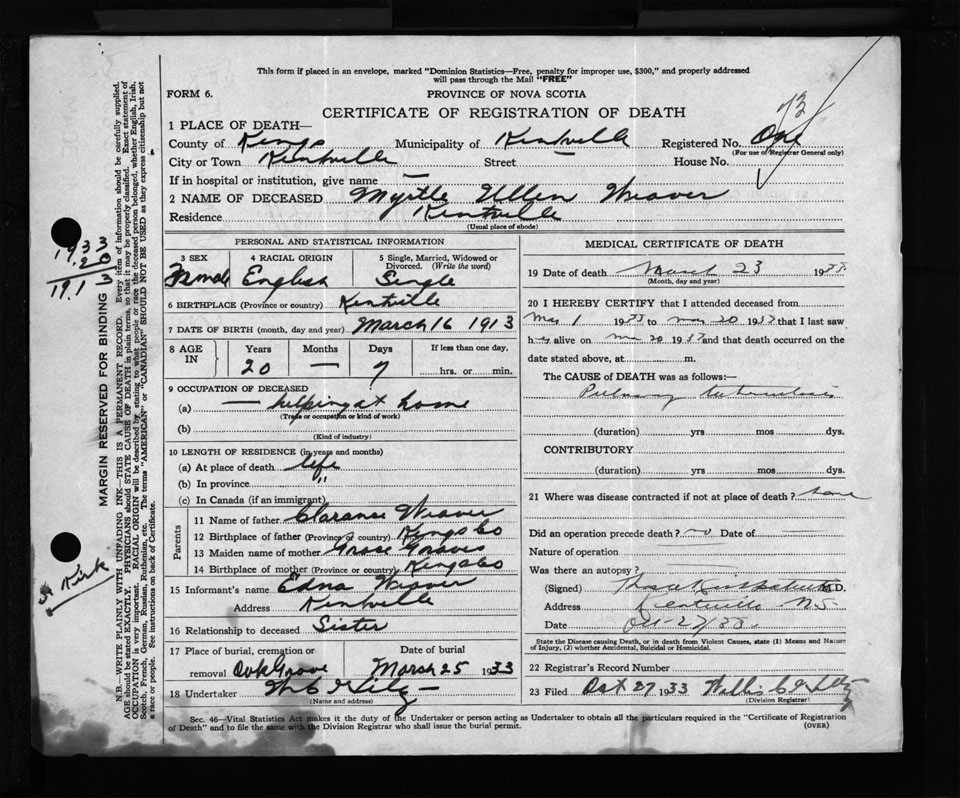 This form if placed in an envelope, marked "Dominion Statistics—Free, penalty for improper use, $300," and properly addressed
will pass through the Mail "FREE"
FORM 6.
PROVINCE OF NOVA SCOTIA
CERTIFICATE OF REGISTRATION OF DEATH
1 PLACE OF DEATH—
County of Kings Municipality of Kentville Registered No. One
(For use of Registrar General only)
City or Town Kentville Street — House No.
If in hospital or institution, give name —
2 NAME OF DECEASED Myrtle Ellen Weaver
Residence Kentville
(Usual place of abode)
PERSONAL AND STATISTICAL INFORMATION
3 SEX 4 RACIAL ORIGIN 5 Single, Married, Widowed or
Divorced. (Write the word)
Female English Single
6 BIRTHPLACE (Province or country) Kentville
7 DATE OF BIRTH (month, day and year) March 16 1913
8 AGE IN Years Months Days If less than one day,
20 — 7 hrs. or min.
9 OCCUPATION OF DECEASED
(a) — helping at home
(Trade or occupation or kind of work)
(b)
(Kind of industry)
10 LENGTH OF RESIDENCE (in years and months)
(a) At place of death life
(b) In province "
(c) In Canada (if an immigrant)
Parents
11 Name of father Clarance Weaver
12 Birthplace of father (Province or country) Kings Co
13 Maiden name of mother Grace Graves
14 Birthplace of mother (Province or country) Kings Co
15 Informant's name Edna Weaver
Address Kentville
16 Relationship to deceased Sister
17 Place of burial, cremation or Date of burial
removal Oak Grove March 25 1933
18 Undertaker
(Name and address)
MEDICAL CERTIFICATE OF DEATH
19 Date of death March 23 1933
(Month, day and year)
20 I HEREBY CERTIFY that I attended deceased from
Mar 1 1933 to Mar 20 1933 that I last saw
her alive on Mar 20 1933 and that death occurred on the
date stated above, at m.
The CAUSE of DEATH was as follows:—
Pulmonary tuberculosis
(duration) yrs mos dys.
CONTRIBUTORY
(duration) yrs mos dys.
21 Where was disease contracted if not at place of death?
Did an operation precede death? no Date of
Nature of operation
Was there an autopsy?
(Signed) M.D.
Address Kentville N.S.
Date Oct-27/33
State the Disease causing Death, or in death from Violent Causes, state (1) Means and Nature
of Injury, (2) whether Accidental, Suicidal or Homicidal.
22 Registrar's Record Number
23 Filed Oct 27 1933
(Division Registrar)
Sec. 46—Vital Statistics Act makes it the duty of the Undertaker or person acting as Undertaker to obtain all the particulars required in the "Certificate of Registration
of Death" and to file the same with the Division Registrar who shall issue the burial permit. (OVER)
MARGIN RESERVED FOR BINDING
N.B.—WRITE PLAINLY WITH UNFADING INK—THIS IS A PERMANENT RECORD. Every item of information should be carefully supplied.
AGE should be stated EXACTLY. PHYSICIANS should STATE CAUSE OF DEATH in plain terms, so that it may be properly classified. Exact statement of
OCCUPATION is very important. RACIAL ORIGIN will be described by stating to what people or race the deceased person belonged, whether English, Irish,
Scotch, French, German, Russian, Ruthenian, etc. The terms "AMERICAN" or "CANADIAN" SHOULD NOT BE USED as they express citizenship but not
a race or people. See instructions on back of Certificate.
1933
20
1913
Kirk